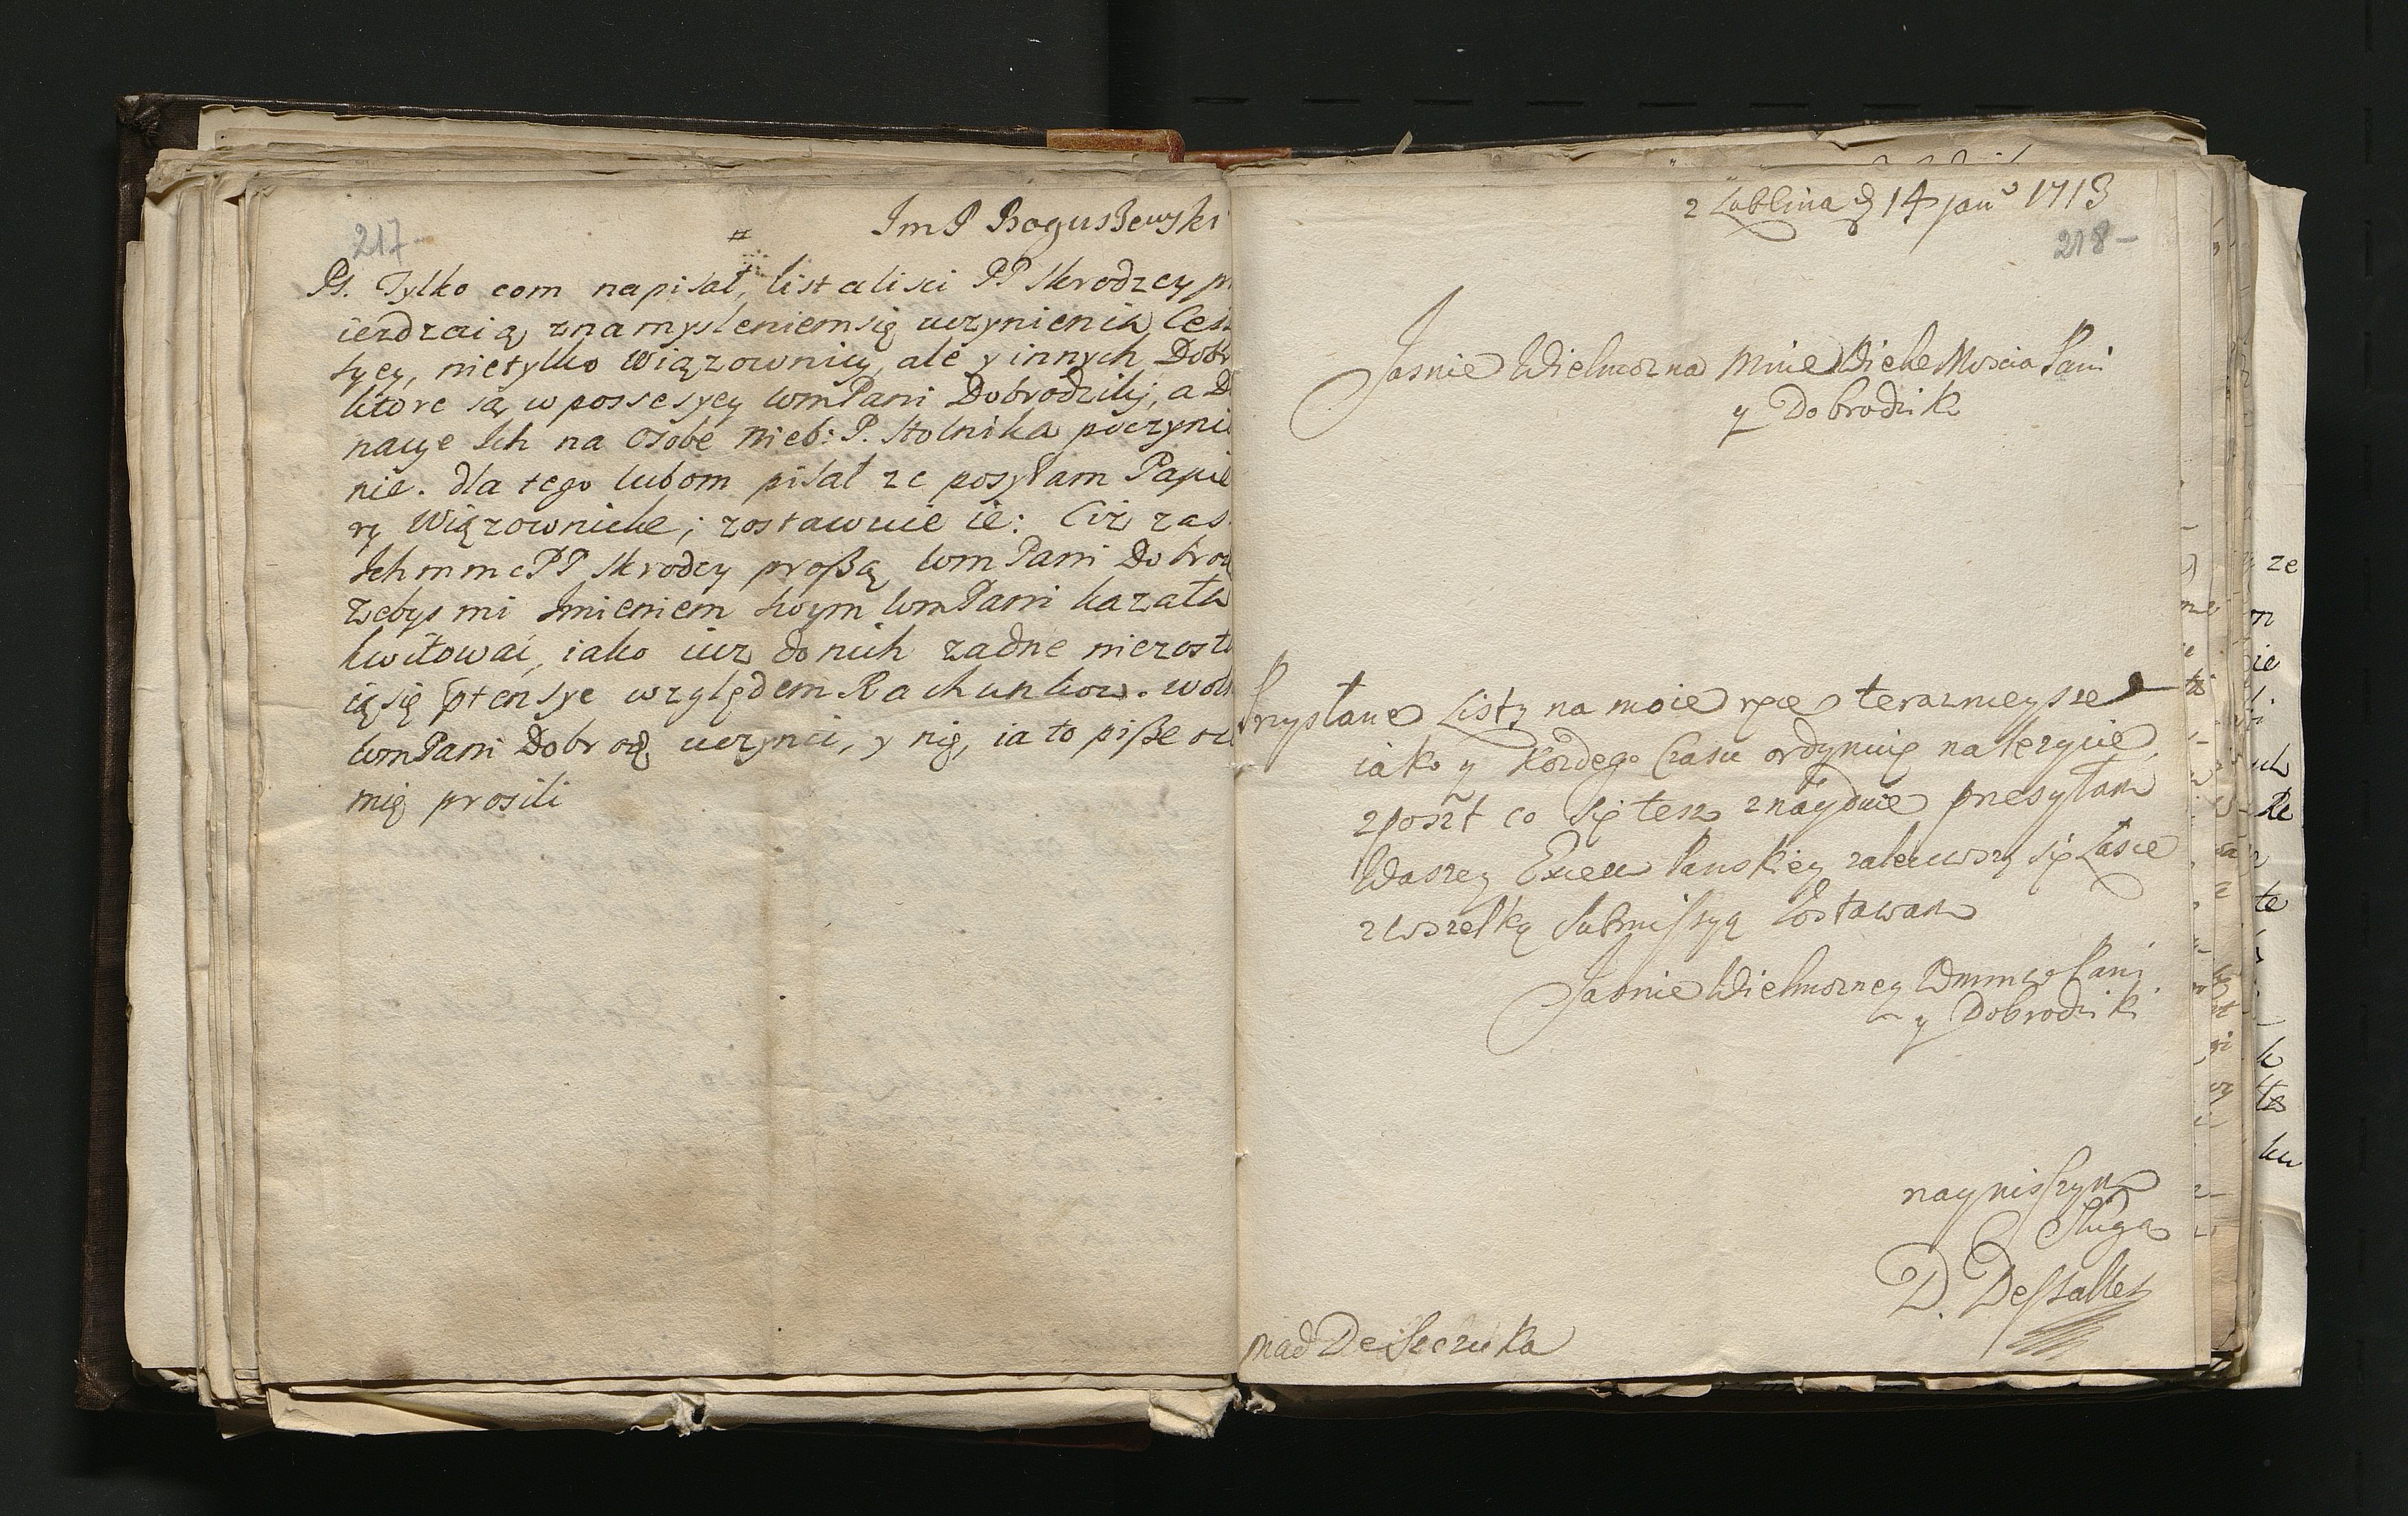 217
#
ImP Boguszewski
Ps. Tylko com napisał, list aliści PP Skrodzcy
ieżdżaią z namysleniem się uczynienia
sycy, nietylko Wiązownicy, ale y innych Dobr
ktore są w possesyey wmPani Dobrodziki, a
nacye Ich na Osobe Nieb: P. Stolnika poczynio
nie. dla tego lubom pisał ze posyłam Papie
ry Wiązownickie; zostawuie ie: Ciz zas
Ichmmc PP Skrodzcy proszą wmPani Dobrod
zebys mi Imieniem swym wmPani kazała
kwitowac, iako iuz do nich zadne niezosta
ią się ptensye względem Rachunkow. wol
wmPani Dobrod uczynic, y nie, ia to pisze
mię prosili
z Lublina d 14 Jan 1713
218
Jasnie Wielmozna Mnie Wiele Moscia Pani
y Dobrodzik
Przysłane Listy na moie ręce terazneysze
iako y kozdego Czasu ordynuię nalezycie,
z poszt co się tesz znayduie presyłam
Waszey Excell Panskiey zaleciwszy się Łasce
z wszelką submissyą Zostawam
Jasnie Wielmozney Wmmw Pani
y Dobrodzik
naynisszym
Sługa
D. Dessalles
mad De Szczuka